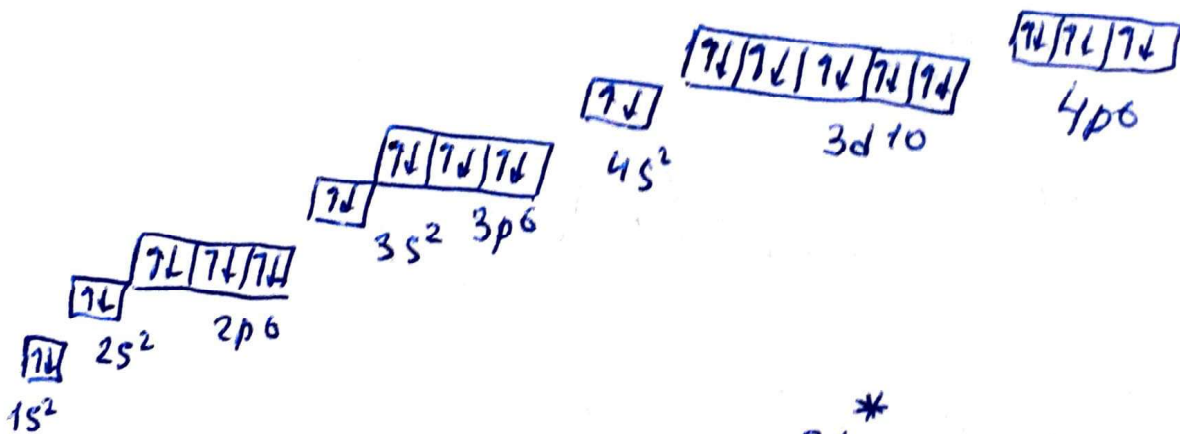 4p6
3d 10
4s²
3s² 3p6
2s² 2p6
1s²
*